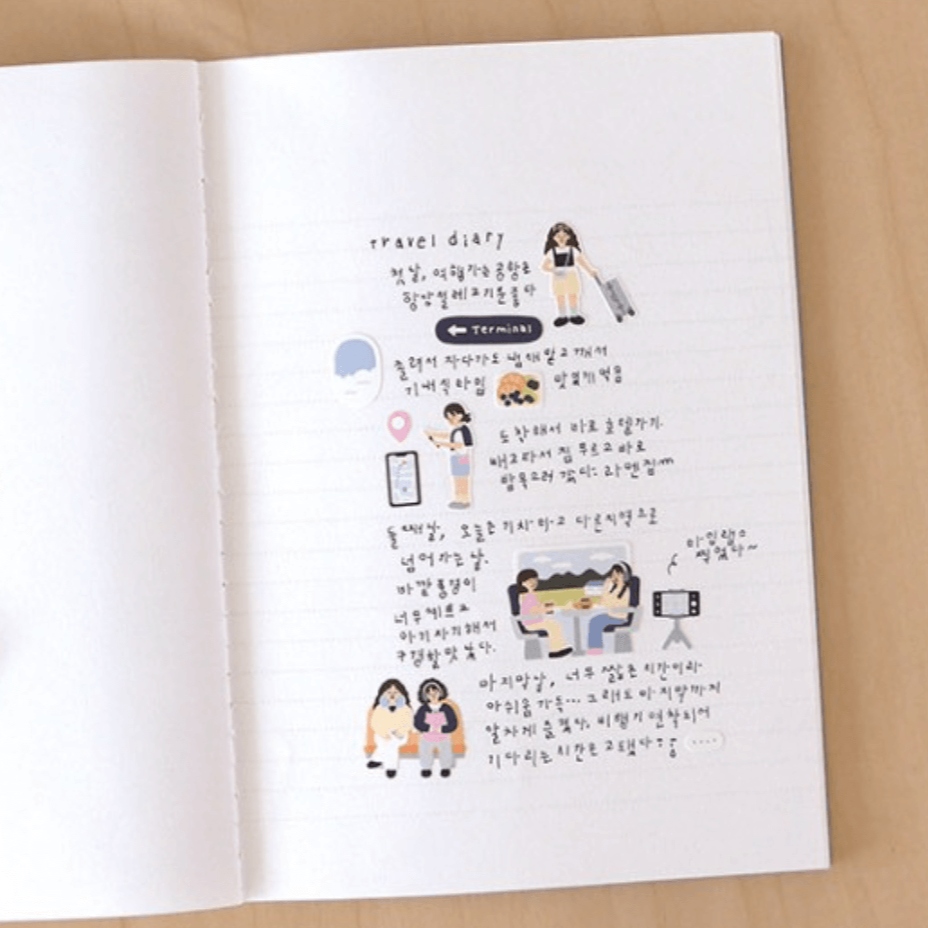 travel diary
첫날, 여행가는 공항은
항상 설레고 기분 좋다
← Terminal
졸려서 자다가도 냄새 맡고 깨서
기내식 타임 맛있게 먹음
도착해서 바로 호텔가기.
배고파서 짐 푸르고 바로
밥 먹으러 갔다: 라멘집
둘째날, 오늘은 기차타고 다른지역으로
넘어가는 날.
바깥 풍경이
너무 예쁘고
아기자기해서
구경할 맛 났다.
찍었다~
마지막날, 너무 짧은 시간이라
아쉬움 가득... 그래도 마지막까지
알차게 즐겼다. 비행기 연착되서
기다리는 시간은 고됐다